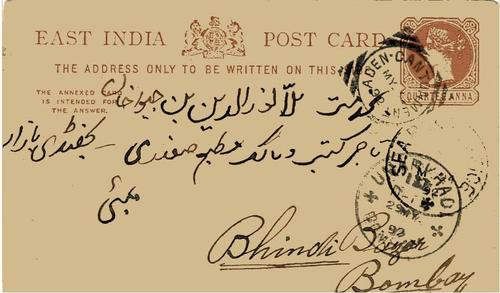 EAST INDIA POST CARD
THE ADDRESS ONLY TO BE WRITTEN ON THIS
THE ANNEXED CARD
IS INTENDED FOR
THE ANSWER.
QUARTER ANNA
ADEN-CANT
بخدمت ملا نورالدین بن جیواخان
تاجر کتب و مالک مطبع صفدری
بمبئی
SEA POST OFFICE
UMARKHADI
BOMBAY
Bhindi Bazar
Bombay